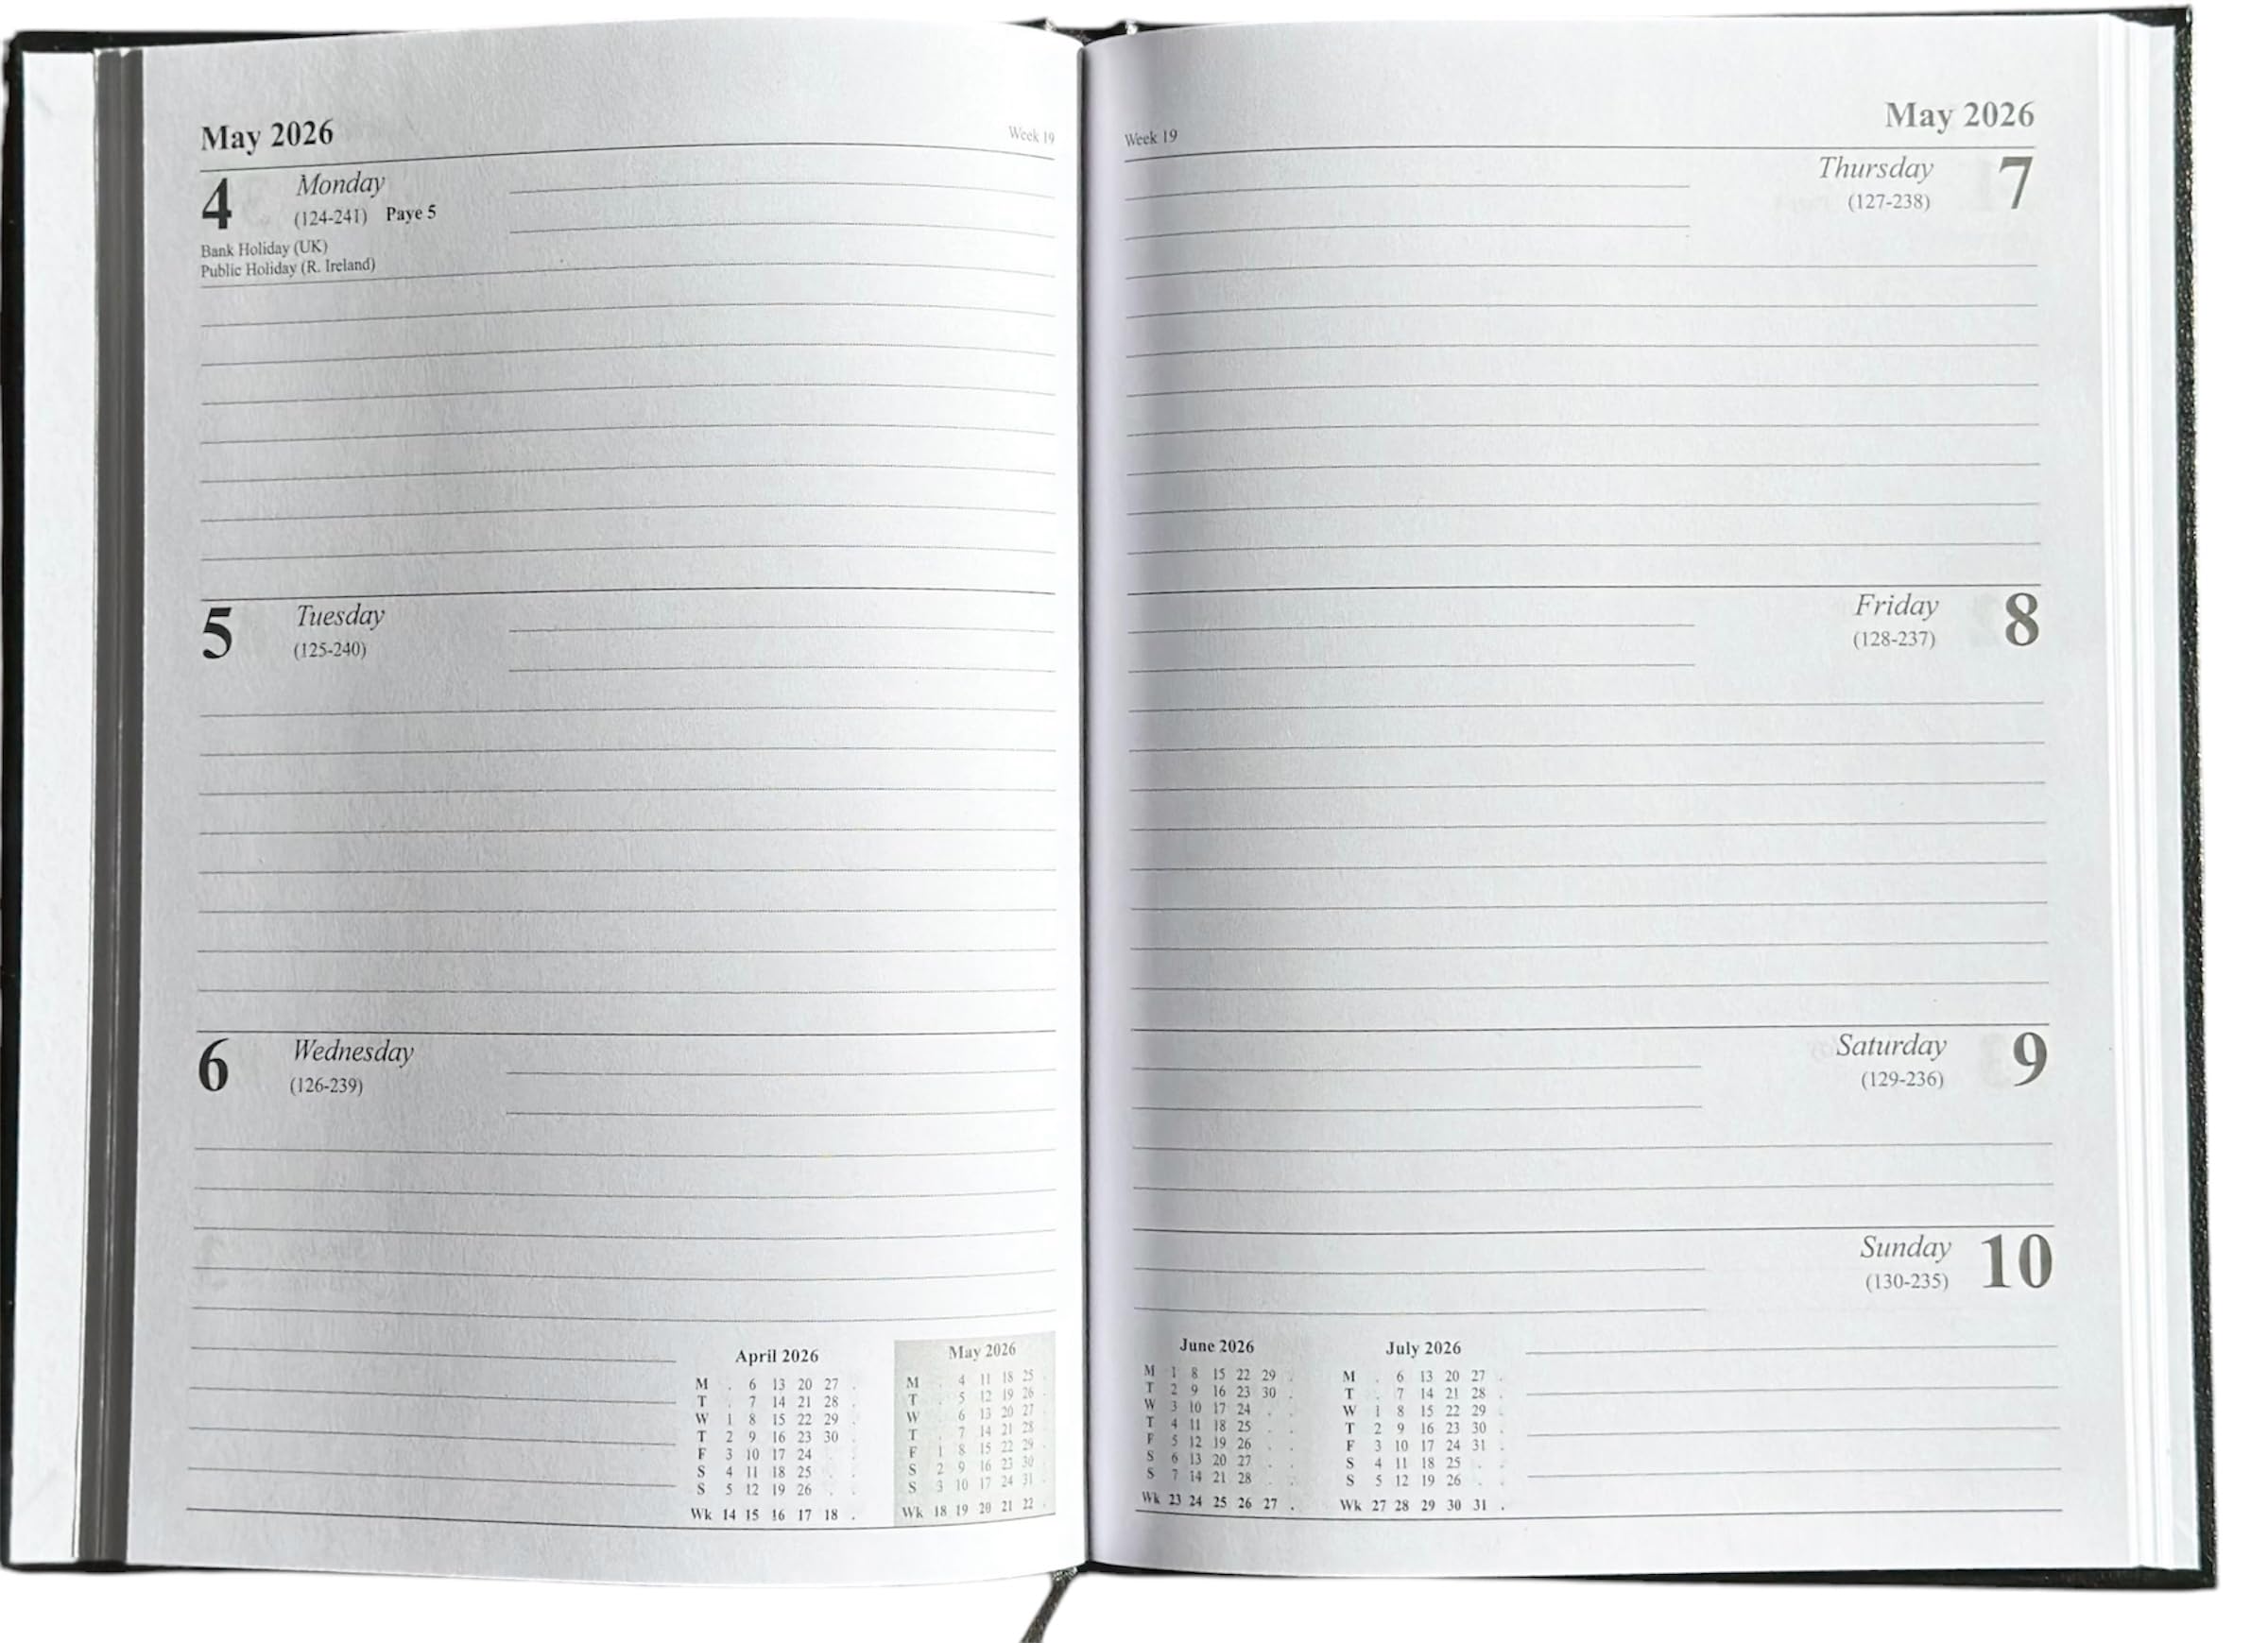 May 2026
Week 19
4 Monday
(124-241) Paye 5
Bank Holiday (UK)
Public Holiday (R. Ireland)
5 Tuesday
(125-240)
6 Wednesday
(126-239)
April 2026
M . 6 13 20 27 .
T . 7 14 21 28 .
W 1 8 15 22 29 .
T 2 9 16 23 30 .
F 3 10 17 24 . .
S 4 11 18 25 . .
S 5 12 19 26 . .
Wk 14 15 16 17 18 .
May 2026
M . 4 11 18 25 .
T . 5 12 19 26 .
W . 6 13 20 27 .
T . 7 14 21 28 .
F 1 8 15 22 29 .
S 2 9 16 23 30 .
S 3 10 17 24 31 .
Wk 18 19 20 21 22 .
Week 19
May 2026
Thursday 7
(127-238)
Friday 8
(128-237)
Saturday 9
(129-236)
Sunday 10
(130-235)
June 2026
M 1 8 15 22 29 .
T 2 9 16 23 30 .
W 3 10 17 24 . .
T 4 11 18 25 . .
F 5 12 19 26 . .
S 6 13 20 27 . .
S 7 14 21 28 . .
Wk 23 24 25 26 27 .
July 2026
M . 6 13 20 27 .
T . 7 14 21 28 .
W 1 8 15 22 29 .
T 2 9 16 23 30 .
F 3 10 17 24 31 .
S 4 11 18 25 . .
S 5 12 19 26 . .
Wk 27 28 29 30 31 .